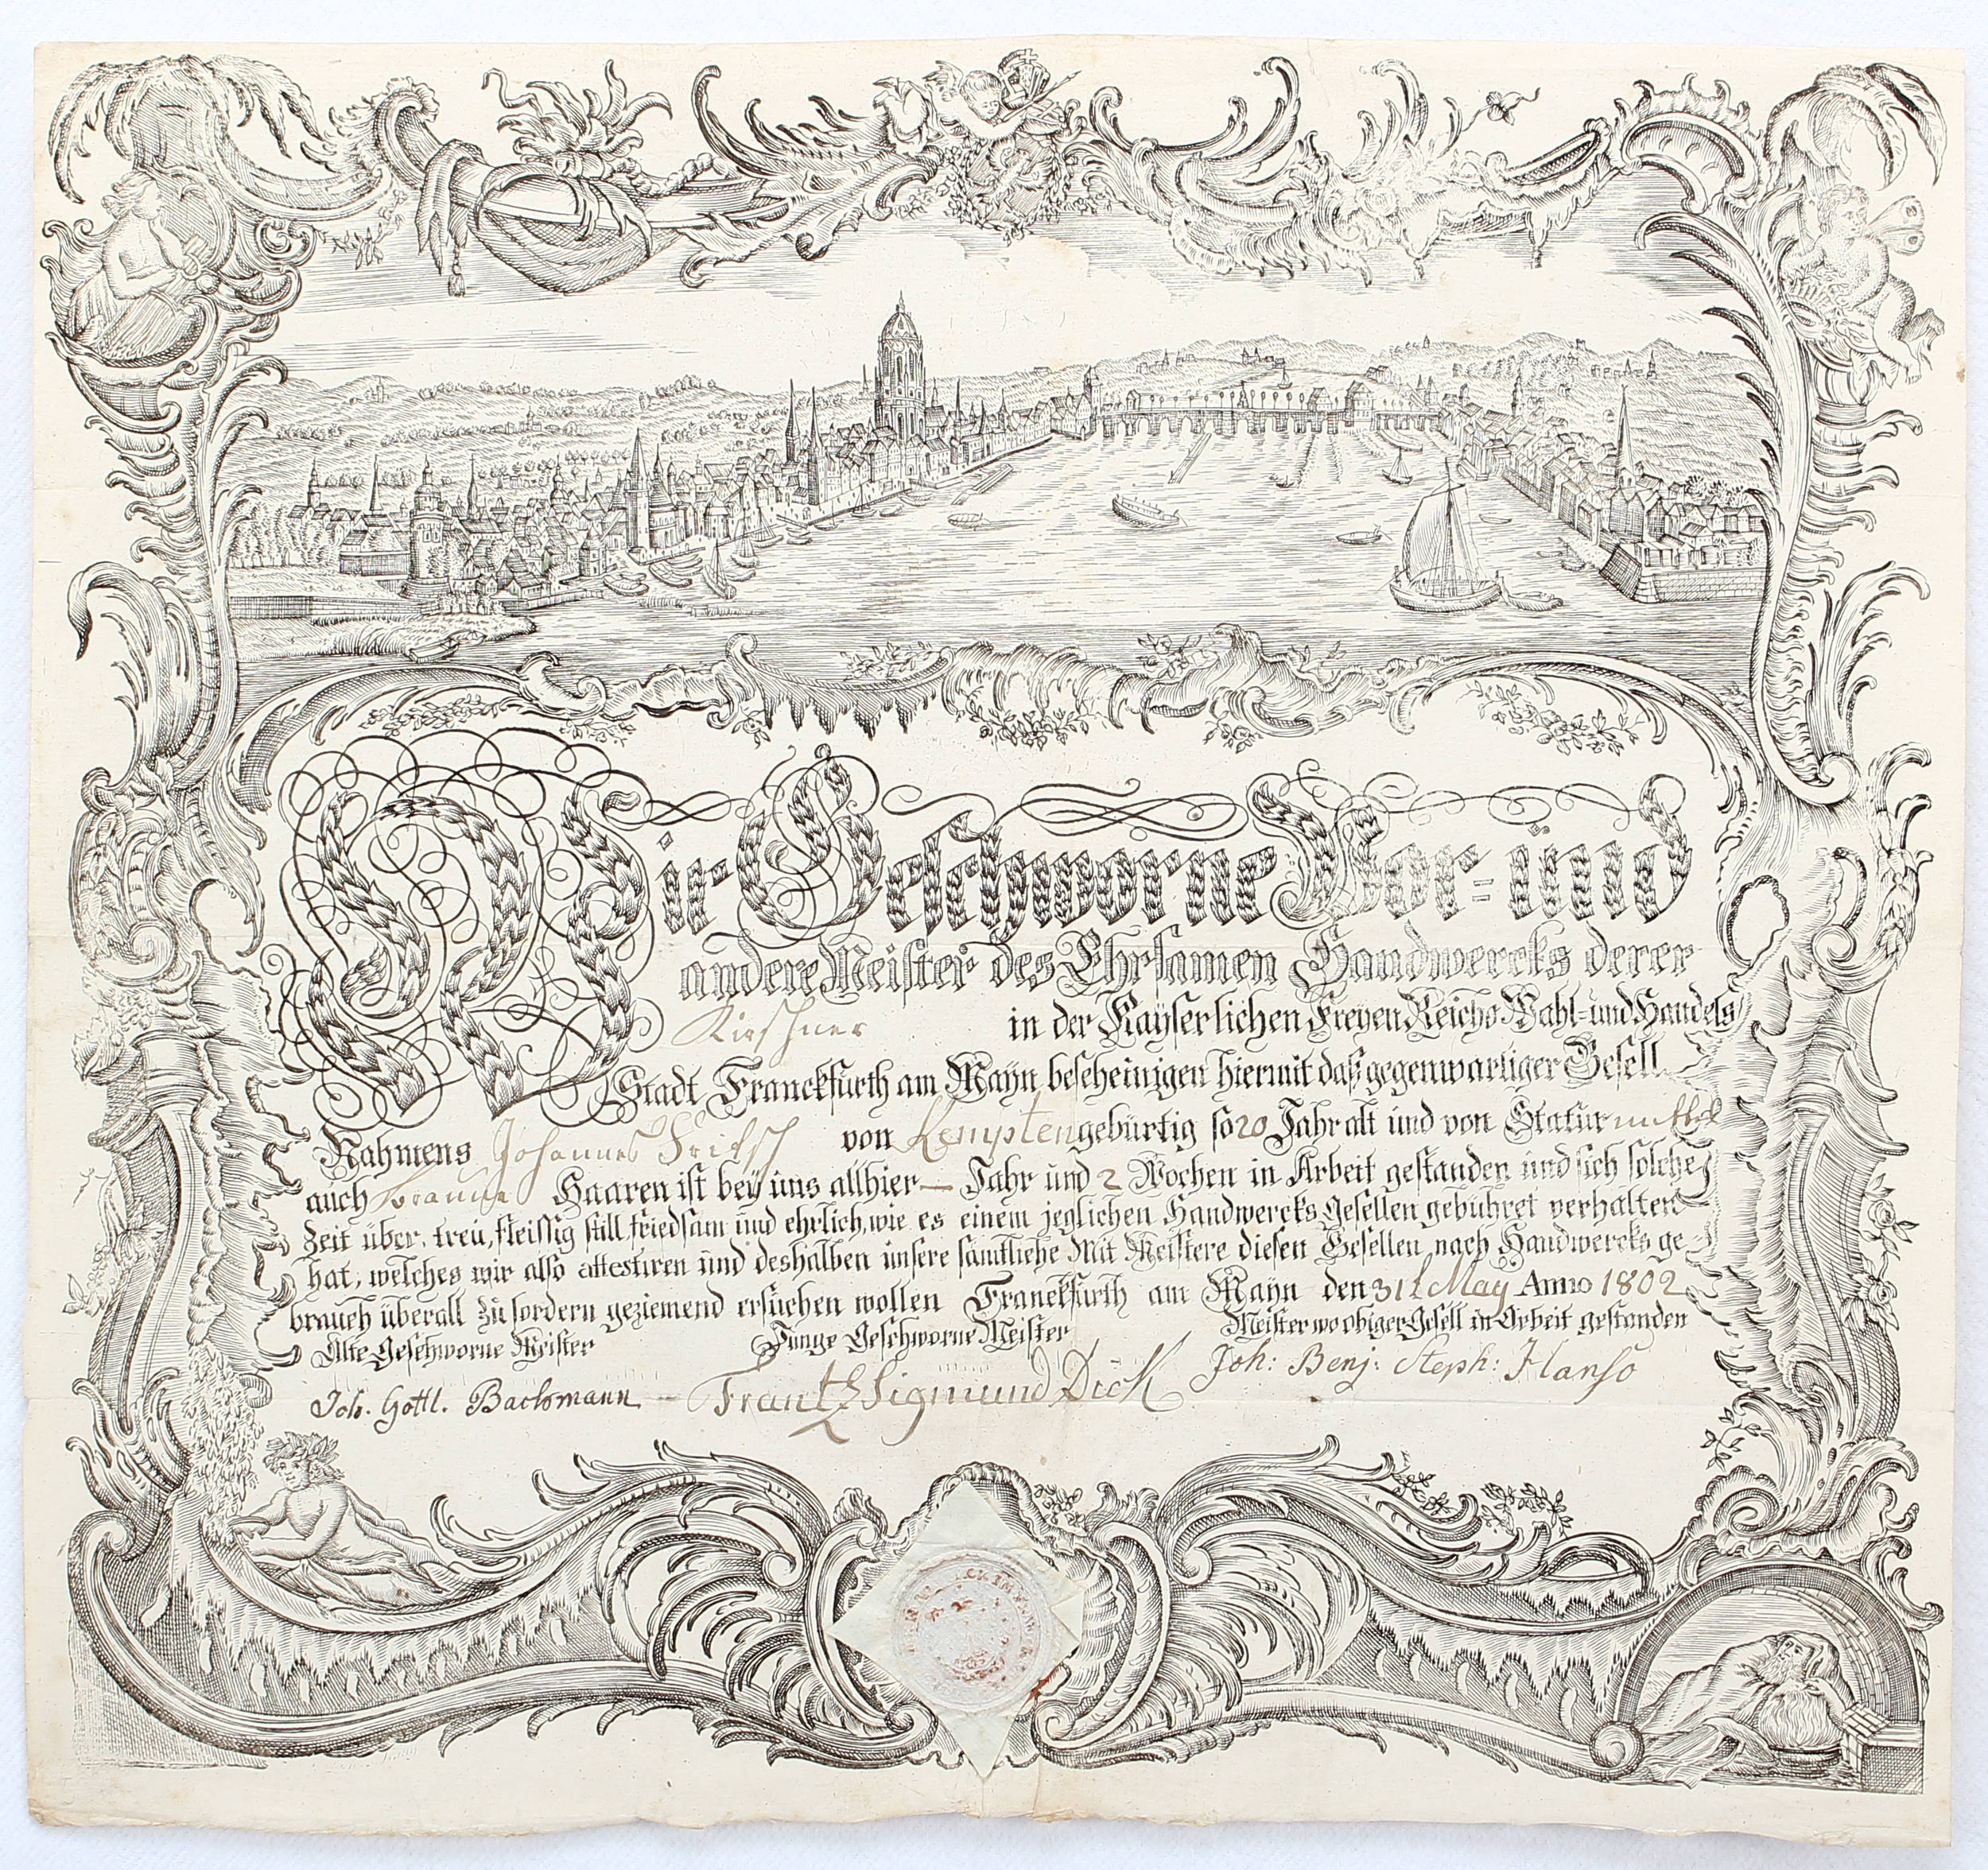 Wir Geschworne Vor- und
andere Meister des Ehrsamen Handwercks derer
Kirschner in der Kayserlichen Freyen Reichs Wahl- und Handels
Stadt Franckfurth am Mayn bescheinigen hiermit daß gegenwärtiger Gesell
Nahmens Johannes Fritsch von Kempten gebürtig so 20 Jahr alt und von Statur mittel
auch braune Haaren ist bey uns allhier — Jahr und 2 Wochen in Arbeit gestanden und sich solche
Zeit über, treu, fleissig still friedsam und ehrlich, wie es einem jeglichen Handwercks Gesellen gebühret verhalten
hat, welches wir also attestiren und deshalben unsere sämtliche Mit Meistere diesen Gesellen nach Handwercks ge-
brauch überall zu fordern geziemend ersuchen wollen Franckfurth am Mayn den 31t May Anno 1802
Alte Geschworne Meister Junge Geschworne Meister Meister wo obiger Gesell in Arbeit gestanden
Joh. Gottl. Bachmann Frantz Sigmund Dick Joh: Benj: Steph: Hanso